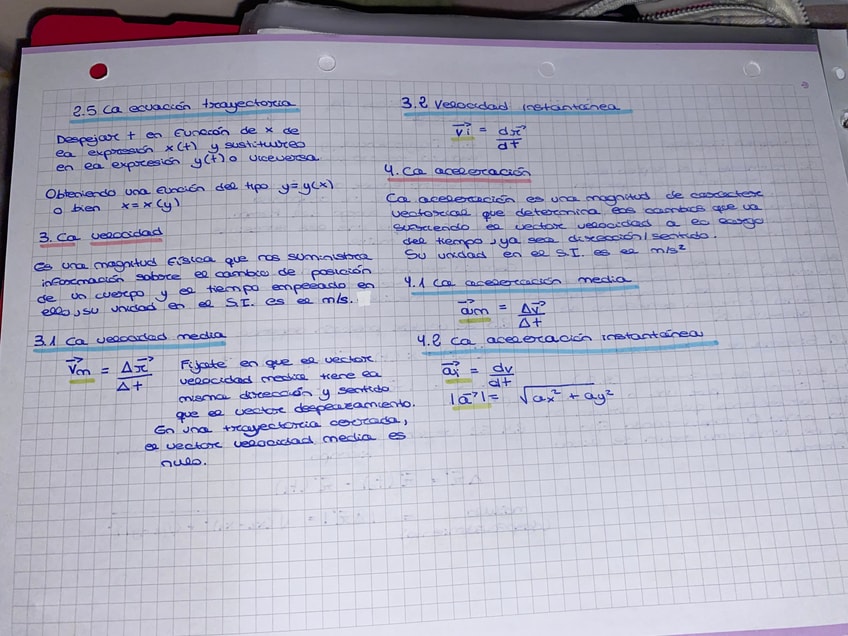 2.5 La ecuación trayectoria
Despejar t en función de x de
la expresión x(t) y sustituirlo
en la expresión y(t) o viceversa.
Obteniendo una función del tipo y=y(x)
o bien x=x(y)
3. La velocidad
Es una magnitud física que nos suministra
información sobre el cambio de posición
de un cuerpo y el tiempo empleado en
ello, su unidad en el S.I. es el m/s.
3.1 La velocidad media
v⃗m = Δr⃗/Δt
Fíjate en que el vector
velocidad media tiene la
misma dirección y sentido
que el vector desplazamiento.
En una trayectoria cerrada,
el vector velocidad media es
nulo.
3.2 Velocidad instantánea
v⃗i = dr⃗/dt
4. La aceleración
La aceleración es una magnitud de carácter
vectorial que determina los cambios que va
sufriendo el vector velocidad a lo largo
del tiempo, ya sea dirección/sentido.
Su unidad en el S.I. es el m/s²
4.1 La aceleración media
a⃗m = Δv⃗/Δt
4.2 La aceleración instantánea
a⃗i = dv/dt
|a⃗| = √ax² + ay²